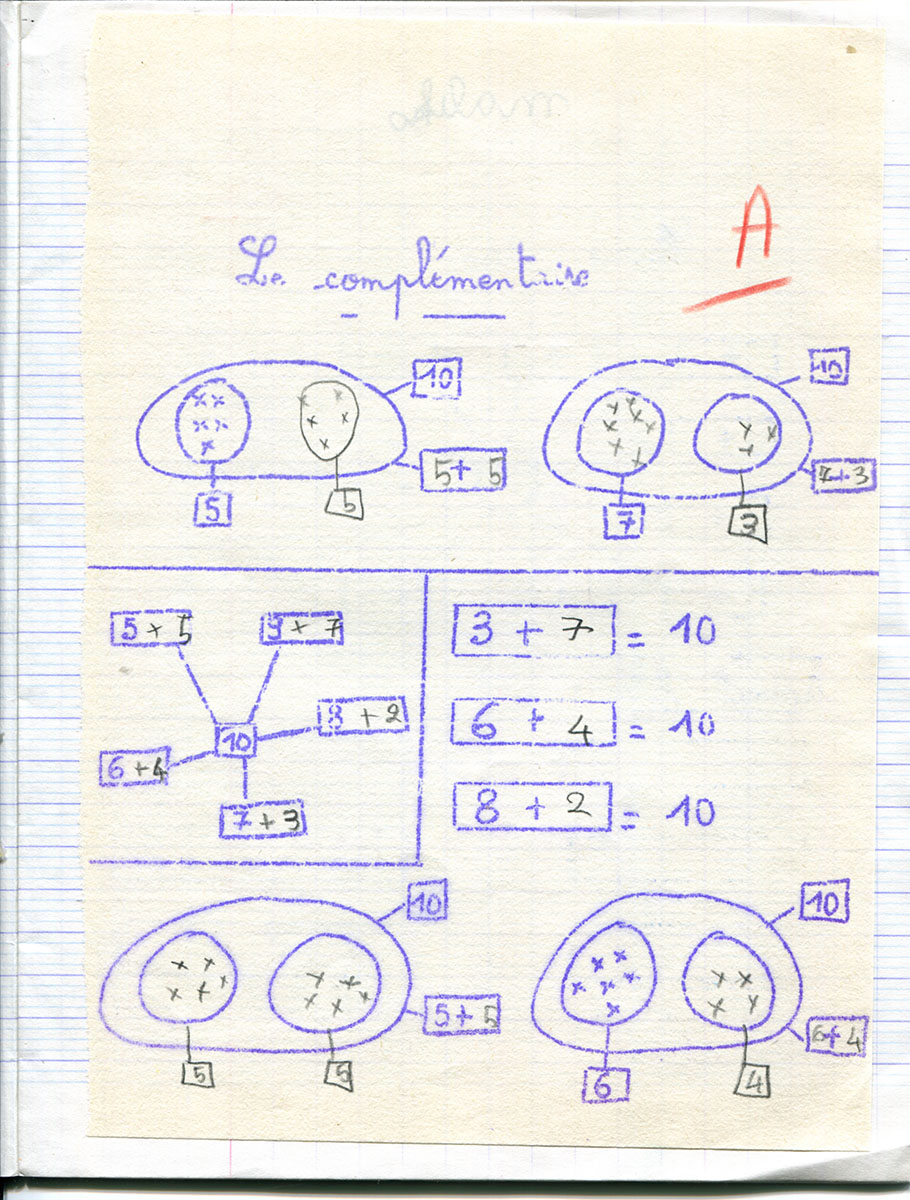 A
Le complémentaire
10
10
5 + 5
7 + 3
5
5
7
3
5 + 5
3 + 7
3 + 7 = 10
8 + 2
6 + 4 = 10
10
6 + 4
7 + 3
8 + 2 = 10
10
10
5 + 5
6 + 4
5
5
6
4